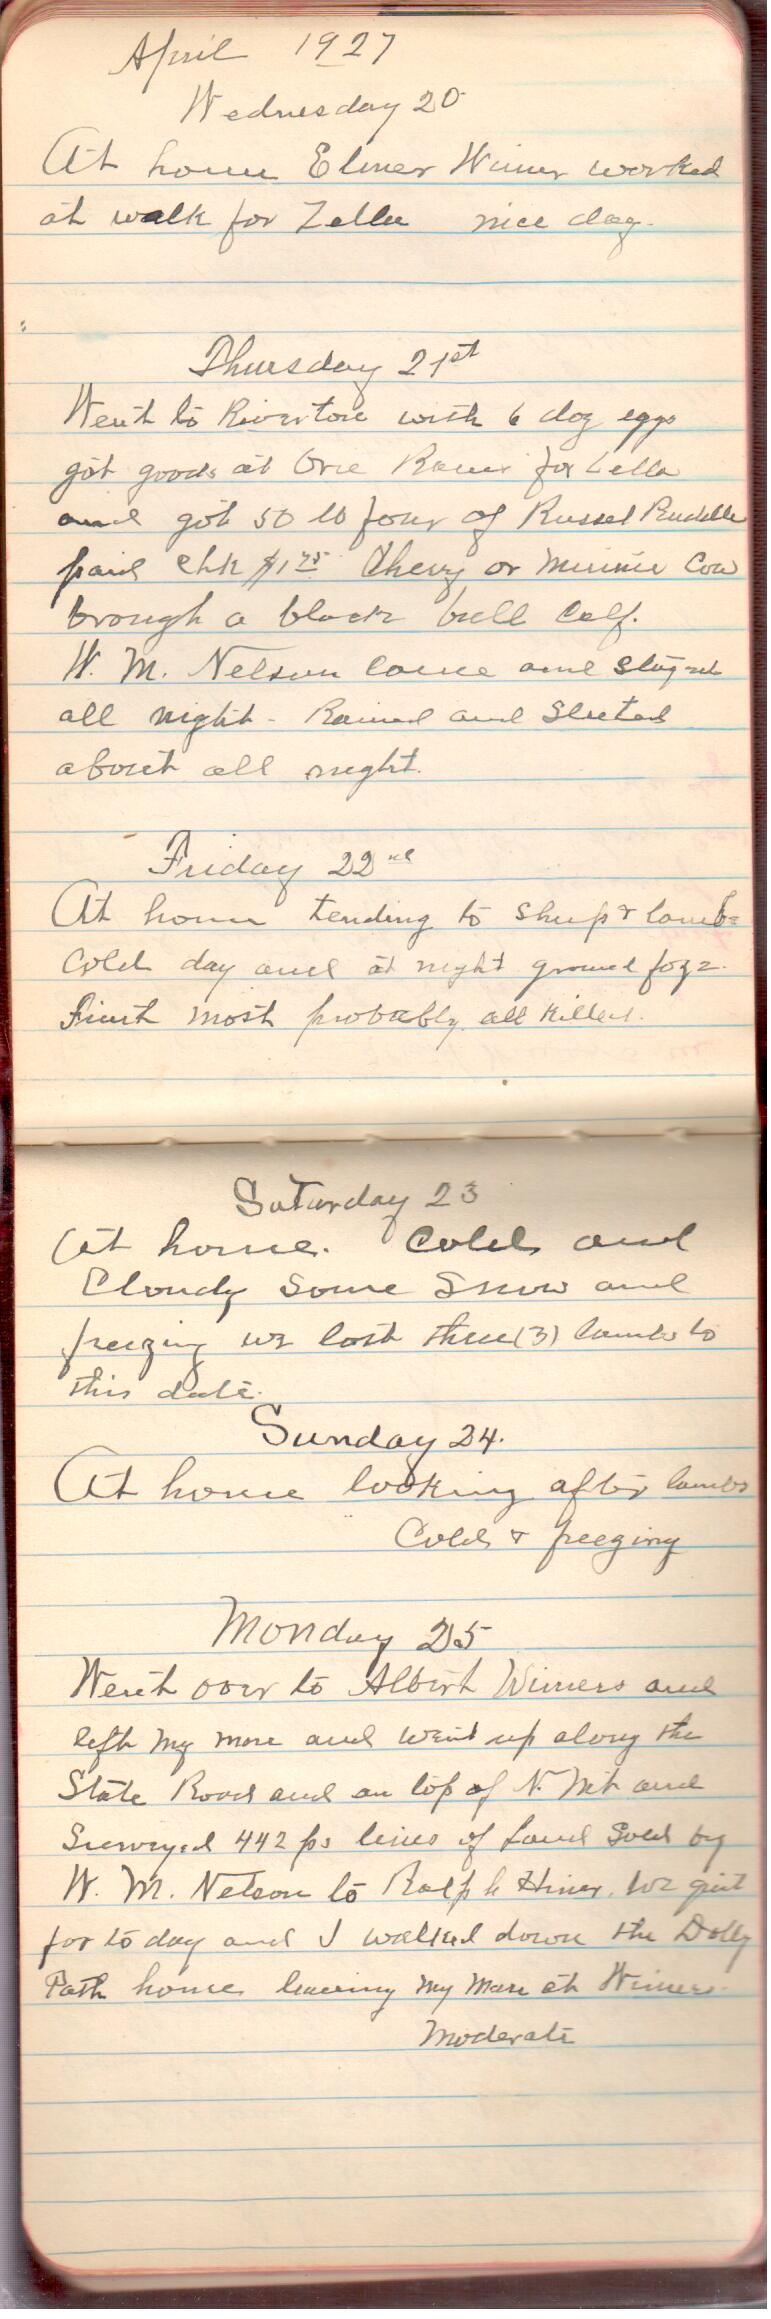 April 1927
Wednesday 20
At home Elmer Wimer worked
at walk for Zella nice day.
Thursday 21st
Went to Riverton with 6 doz eggs
got goods at Orie for Zella
and got 50 lb four of Russel Ruddle
paid chk $1.75 Cherry or Minnie Cow
brough a black bull Calf.
W. M. Nelson came and Stayed
all night - Rained and Sleeted
about all night.
Friday 22nd
At home tending to sheep & lambs
Cold day and at night ground foze.
Fruit most probably all killed.
Saturday 23
At home. Cold and
Cloudy Some Snow and
freezing we lost three (3) lambs to
this date.
Sunday 24.
At home looking after lambs
Cold & freezing
Monday 25
Went over to Albert Wimers and
left my mare and went up along the
State Road and on top of N. Mt and
Surveyed 442 ps lines of Land Sold by
W. M. Nelson to Ralph Hiner. We quit
for to day and I walked down the Dolly
Path home leaving my mare at Wimers.
Moderate